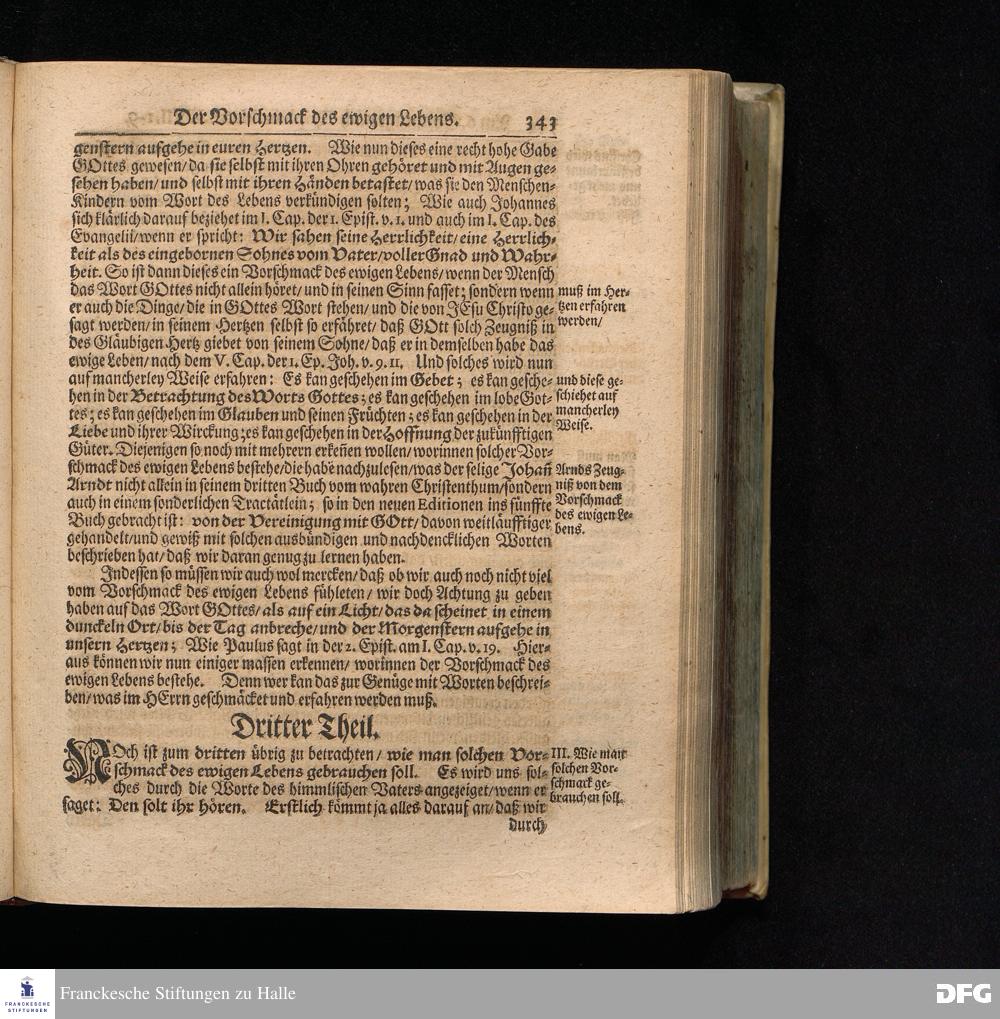 Der Vorschmack des ewigen Lebens. 343
genstern aufgehe in euren Hertzen. Wie nun dieses eine recht hohe Gabe
GOttes gewesen/ da sie selbst mit ihren Ohren gehöret und mit Augen ge-
sehen haben/ und selbst mit ihren Händen betastet/ was sie den Menschen-
Kindern vom Wort des Lebens verkündigen solten; Wie auch Johannes
sich klärlich darauf beziehet im I. Cap. der 1. Epist. v. 1. und auch im I. Cap. des
Evangelii/ wenn er spricht: Wir sahen seine Herrlichkeit/ eine Herrlich-
keit als des eingebornen Sohnes vom Vater/ voller Gnad und Wahr-
heit. So ist dann dieses ein Vorschmack des ewigen Lebens/ wenn der Mensch
das Wort GOttes nicht allein höret/ und in seinen Sinn fasset; sondern wenn
er auch die Dinge/ die in GOttes Wort stehen/ und die von JEsu Christo ge-
sagt werden/ in seinem Hertzen selbst so erfähret/ daß GOtt solch Zeugniß in
des Gläubigen Hertz giebet von seinem Sohne/ daß er in demselben habe das
ewige Leben/ nach dem V. Cap. der 1. Ep. Joh. v. 9. 11. Und solches wird nun
auf mancherley Weise erfahren: Es kan geschehen im Gebet; es kan gesche-
hen in der Betrachtung des Worts Gottes; es kan geschehen im lobe Got-
tes; es kan geschehen im Glauben und seinen Früchten; es kan geschehen in der
Liebe und ihrer Wirckung; es kan geschehen in der Hoffnung der zukünfftigen
Güter. Diejenigen so noch mit mehrern erkeñen wollen/ worinnen solcher Vor-
schmack des ewigen Lebens bestehe/ die habē nachzulesen/ was der selige Johañ
Arndt nicht allein in seinem dritten Buch vom wahren Christenthum/ sondern
auch in einem sonderlichen Tractätlein; so in den neuen Editionen ins fünffte
Buch gebracht ist: von der Vereinigung mit GOtt/ davon weitläufftiger
gehandelt/ und gewiß mit solchen ausbündigen und nachdencklichen Worten
beschrieben hat/ daß wir daran genug zu lernen haben.
Indessen so müssen wir auch wol mercken/ daß ob wir auch noch nicht viel
vom Vorschmack des ewigen Lebens fühleten/ wir doch Achtung zu geben
haben auf das Wort GOttes/ als auf ein Licht/ das da scheinet in einem
dunckeln Ort/ bis der Tag anbreche/ und der Morgenstern aufgehe in
unsern Hertzen; Wie Paulus sagt in der 2. Epist. am I. Cap. v. 19. Hier-
aus können wir nun einiger massen erkennen/ worinnen der Vorschmack des
ewigen Lebens bestehe. Denn wer kan das zur Genüge mit Worten beschrei-
ben/ was im HErrn geschmäcket und erfahren werden muß.
muß im Her-
tzen erfahren
werden/
und diese ge-
schiehet auf
mancherley
Weise.
Arnds Zeug-
niß von dem
Vorschmack
des ewigen Le-
bens.
Dritter Theil.
NOch ist zum dritten übrig zu betrachten/ wie man solchen Vor-
schmack des ewigen Lebens gebrauchen soll. Es wird uns sol-
ches durch die Worte des himmlischen Vaters angezeiget/ wenn er
saget: Den solt ihr hören. Erstlich kömmt ja alles darauf an/ daß wir
durch
III. Wie man
solchen Vor-
schmack ge-
brauchen soll.
FRANCKESCHE
STIFTUNGEN
Franckesche Stiftungen zu Halle
DFG